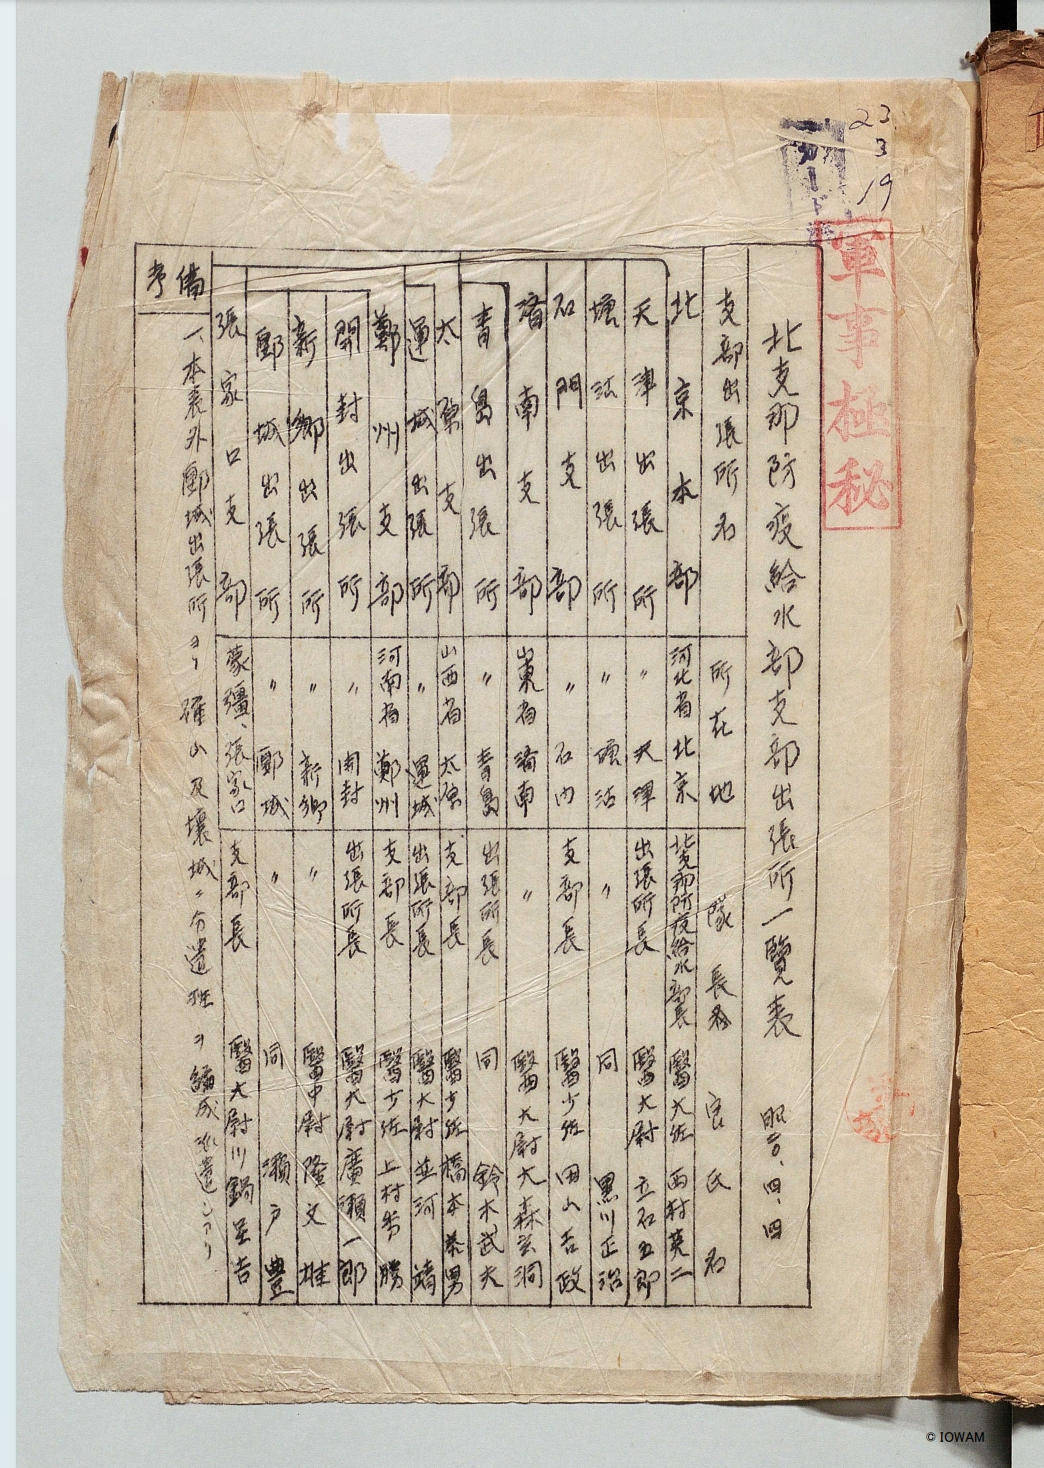 23
3
19
軍事極秘
北支那防疫給水部支部出張所一覽表 昭二〇、四、四
支部出張所名 所在地 隊長 官氏名
北京本部 河北省北京 北支那防疫給水部長 醫大佐 西村英二
天津出張所 〃 天津 出張所長 醫大尉 立石五郎
塘沽出張所 〃 塘沽 〃 同 黒川正治
石門支部 〃 石門 支部長 醫少佐 田山吉政
濟南支部 山東省濟南 〃 醫大尉 大森玄洞
青島出張所 〃 青島 出張所長 同 鈴木武夫
太原支部 山西省太原 支部長 醫少佐 橋本 男
運城出張所 〃 運城 出張所長 醫大尉 並河 靖
鄭州支部 河南省鄭州 支部長 醫少佐 上村秀勝
開封出張所 〃 開封 出張所長 醫大尉 廣瀬一郎
新鄉出張所 〃 新鄉 〃 醫中尉 隆文雄
郾城出張所 〃 郾城 〃 同 瀬戸豊
張家口支部 蒙疆、張家口 支部長 醫大尉 川鍋里吉
備考
一、本表外郾城出張所ヨリ確山及壤城ニ分遣班ヲ編成派遣シアリ
© IOWAM